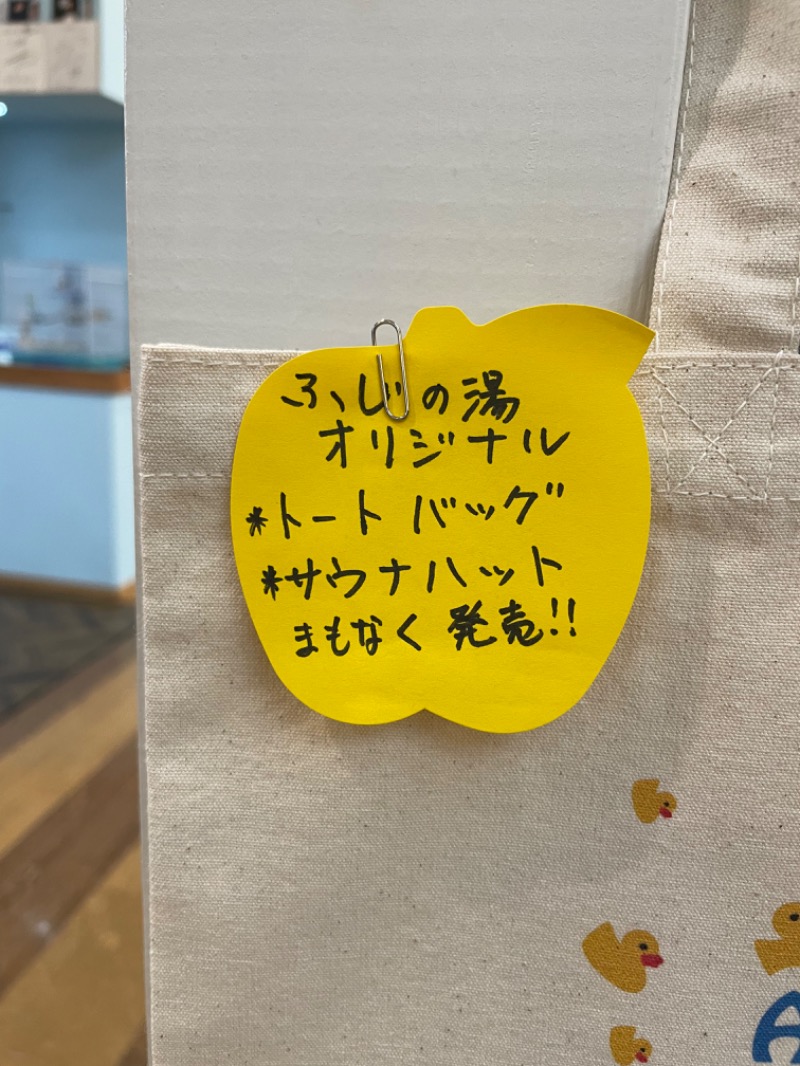 ふじの湯
オリジナル
*トートバッグ
*サウナハット
まもなく発売!!
A